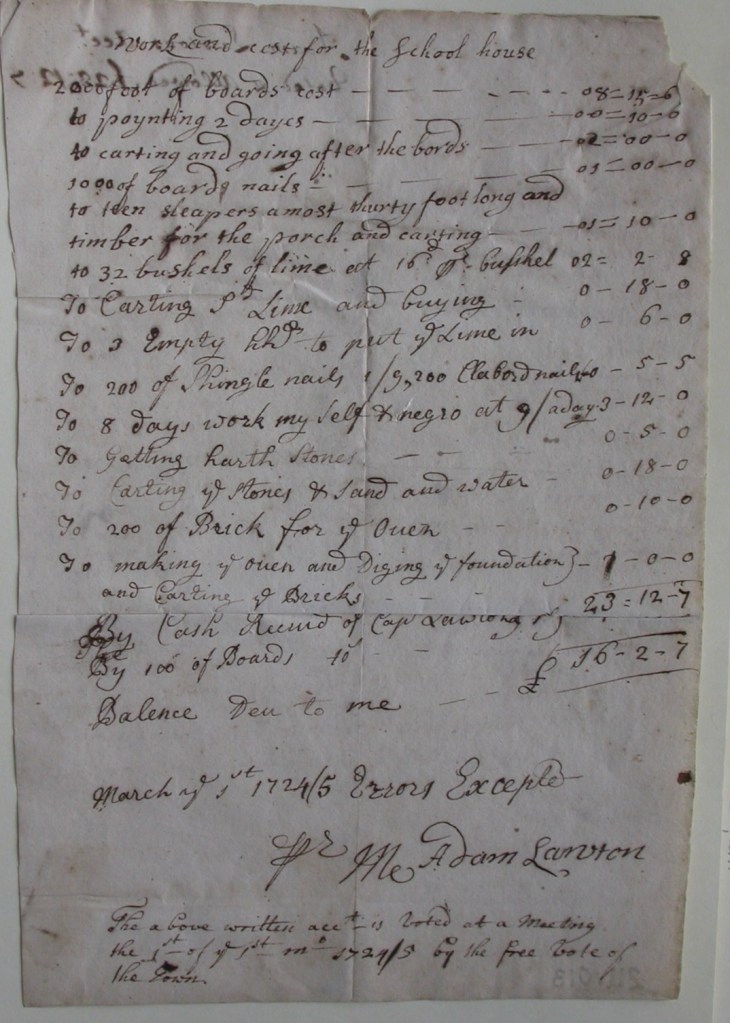 Work and cost for the School house
2000 foot of boards cost — — — — — — 08=15=6
to poynting 2 dayes — — — — — 00=10-0
to carting and going after the bords — — 02=00-0
1000 of boards nails — — — 01=00-0
to teen sleapers amost thurty foot long and
timber for the porch and carting — — 01=10-0
to 32 bushels of lime at 16d pr bushel 02=2-8
To Carting sd Lime and buying - 0-18-0
To 3 Empty hhds to put ye Lime in 0-6-0
To 200 of Shingle nails 1/9, 200 Clabord nails 0-5-5
To 8 days work my self & negro at 9/ a day 3-12-0
To Getting harth Stones — — 0-5-0
To Carting ye Stones & Sand and water - 0-18-0
To 200 of Brick for ye Oven - - 0-10-0
To making ye oven and Diging ye foundation} - 1-0-0
and Carting ye Bricks - - - 23=12-7
By Cash Recued of Cap Lawtong
By 100 of Boards 10s - -
£ 16-2-7
Balence Deu to me — - -
March ye 1st 1724/5 Errors Excepted
pr Me Adam Lawton
The above written acct is Voted at a Meeting
the 1st of ye 1st mo 1724/5 by the free Vote of
the Town.